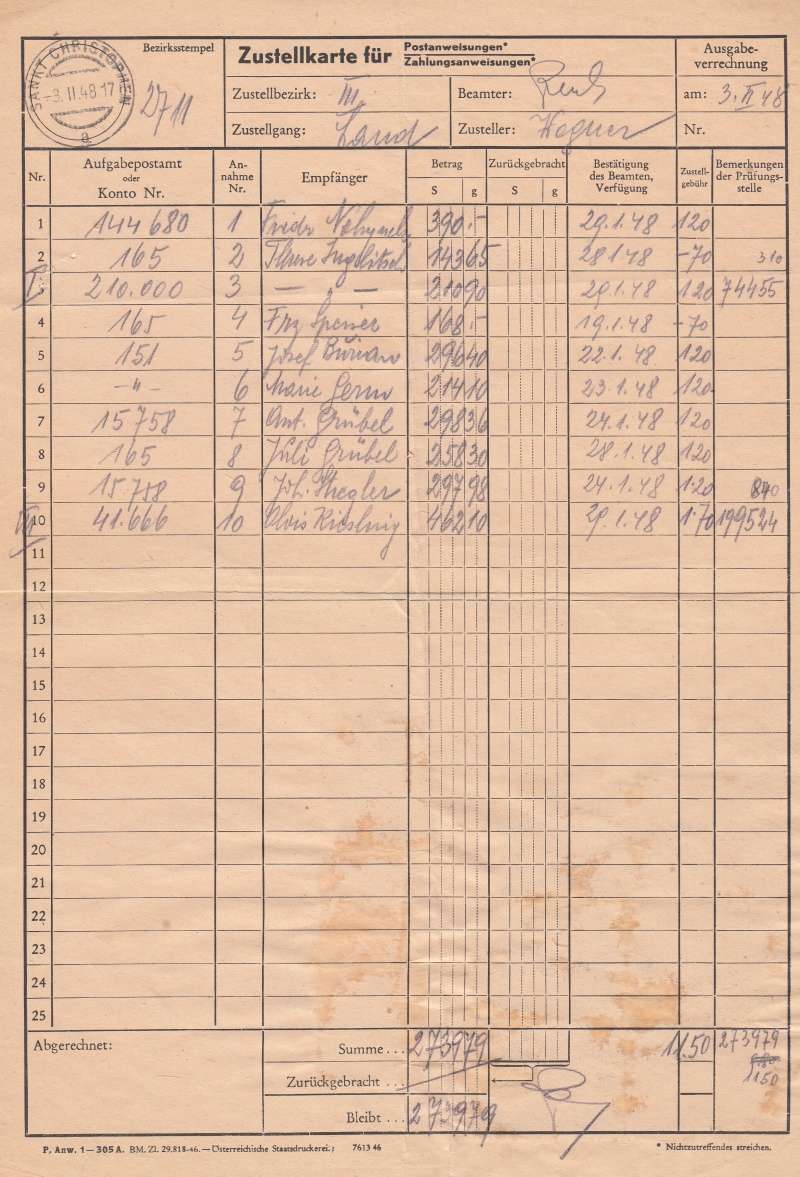 SANKT CHRISTOPHEN
-3. II. 48 17
a
Bezirksstempel
2711
Zustellkarte für Postanweisungen*
Zahlungsanweisungen*
Ausgabe-
verrechnung
Zustellbezirk: III
Beamter:
am: 3. II 48
Zustellgang: Land
Zusteller: Wegner
Nr.
Nr. Aufgabepostamt oder Konto Nr. An-nahme Nr. Empfänger Betrag S g Zurückgebracht S g Bestätigung des Beamten, Verfügung Zustell-gebühr Bemerkungen der Prüfungs-stelle
1 144 680 1 Friedr 390.- 29.1.48 120
2 165 2 143 65 28 1 48 -70 310
3 210.000 3 — " — 210 90 29.1.48 120 744 55
4 165 4 Frz Speiser 168.- 19.1.48 -70
5 151 5 Josef Burian 296 40 22.1.48 120
6 -"- 6 Marie 214 10 23.1.48 120
7 15 758 7 Ant. Grübel 298 36 24.1.48 120
8 165 8 Juli Grübel 258 30 28.1.48 120
9 15.758 9 Joh. Stiegler 297 98 24.1.48 120 840
10 41.666 10 Alois Kiesling 462 10 29.1.48 170 1995 24
11
12
13
14
15
16
17
18
19
20
21
22
23
24
25
Abgerechnet:
Summe . . . 2739 79 11.50 2739 79
Zurückgebracht . . . 11 50
Bleibt . . . 2739 79
P. Anw. 1—305 A. BM. Zl. 29.818-46. — Österreichische Staatsdruckerei. 7613 46
* Nichtzutreffendes streichen.